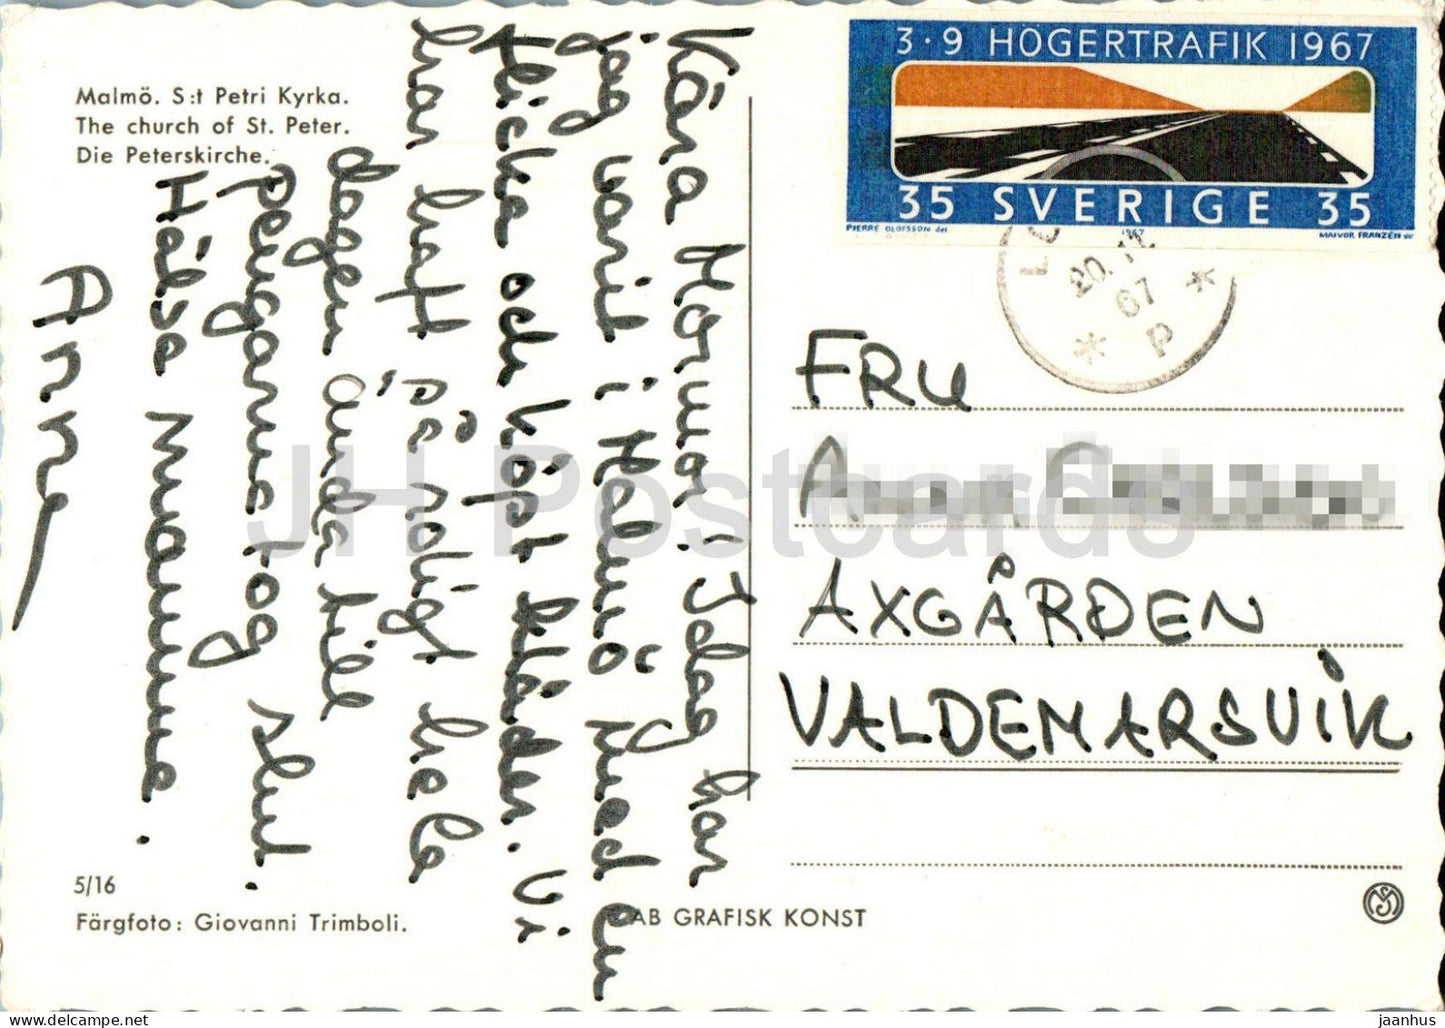 Malmö. S:t Petri Kyrka.
The church of St. Peter.
Die Peterskirche.
3·9 HÖGERTRAFIK 1967
35 SVERIGE 35
PIERRE OLOFSSON det
1967
MAJVOR FRANZÉN sc
20. 12.
67
P
Kära Mormor! Idag har
jag varit i Malmö med en
flicka och köpt kläder. Vi
har haft så roligt hela
dagen ända till
pengarna tog slut.
Hälsa mamma.
Anne
FRU
AXGÅRDEN
VALDEMARSVIK
5/16
Färgfoto: Giovanni Trimboli.
AB GRAFISK KONST
JH Postcards
www.delcampe.net
jaanhus